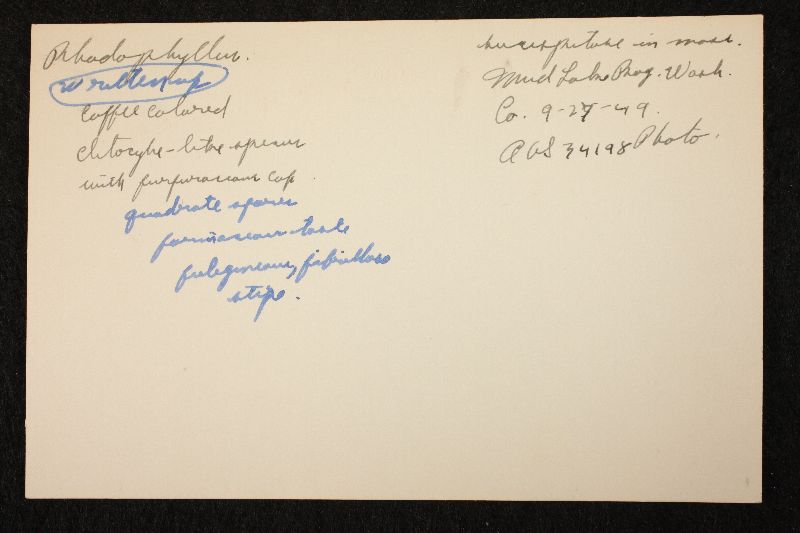 Rhodophyllus.
Written up
Coffee colored
clitocybe-like species
with furfuraceous cap.
quadrate spores
farinaceous taste
fuligineous, fibrillose
stipe.
in moss.
Mud Lake Bog. Wash.
Co. 9-27-49.
AHS 34198 Photo.